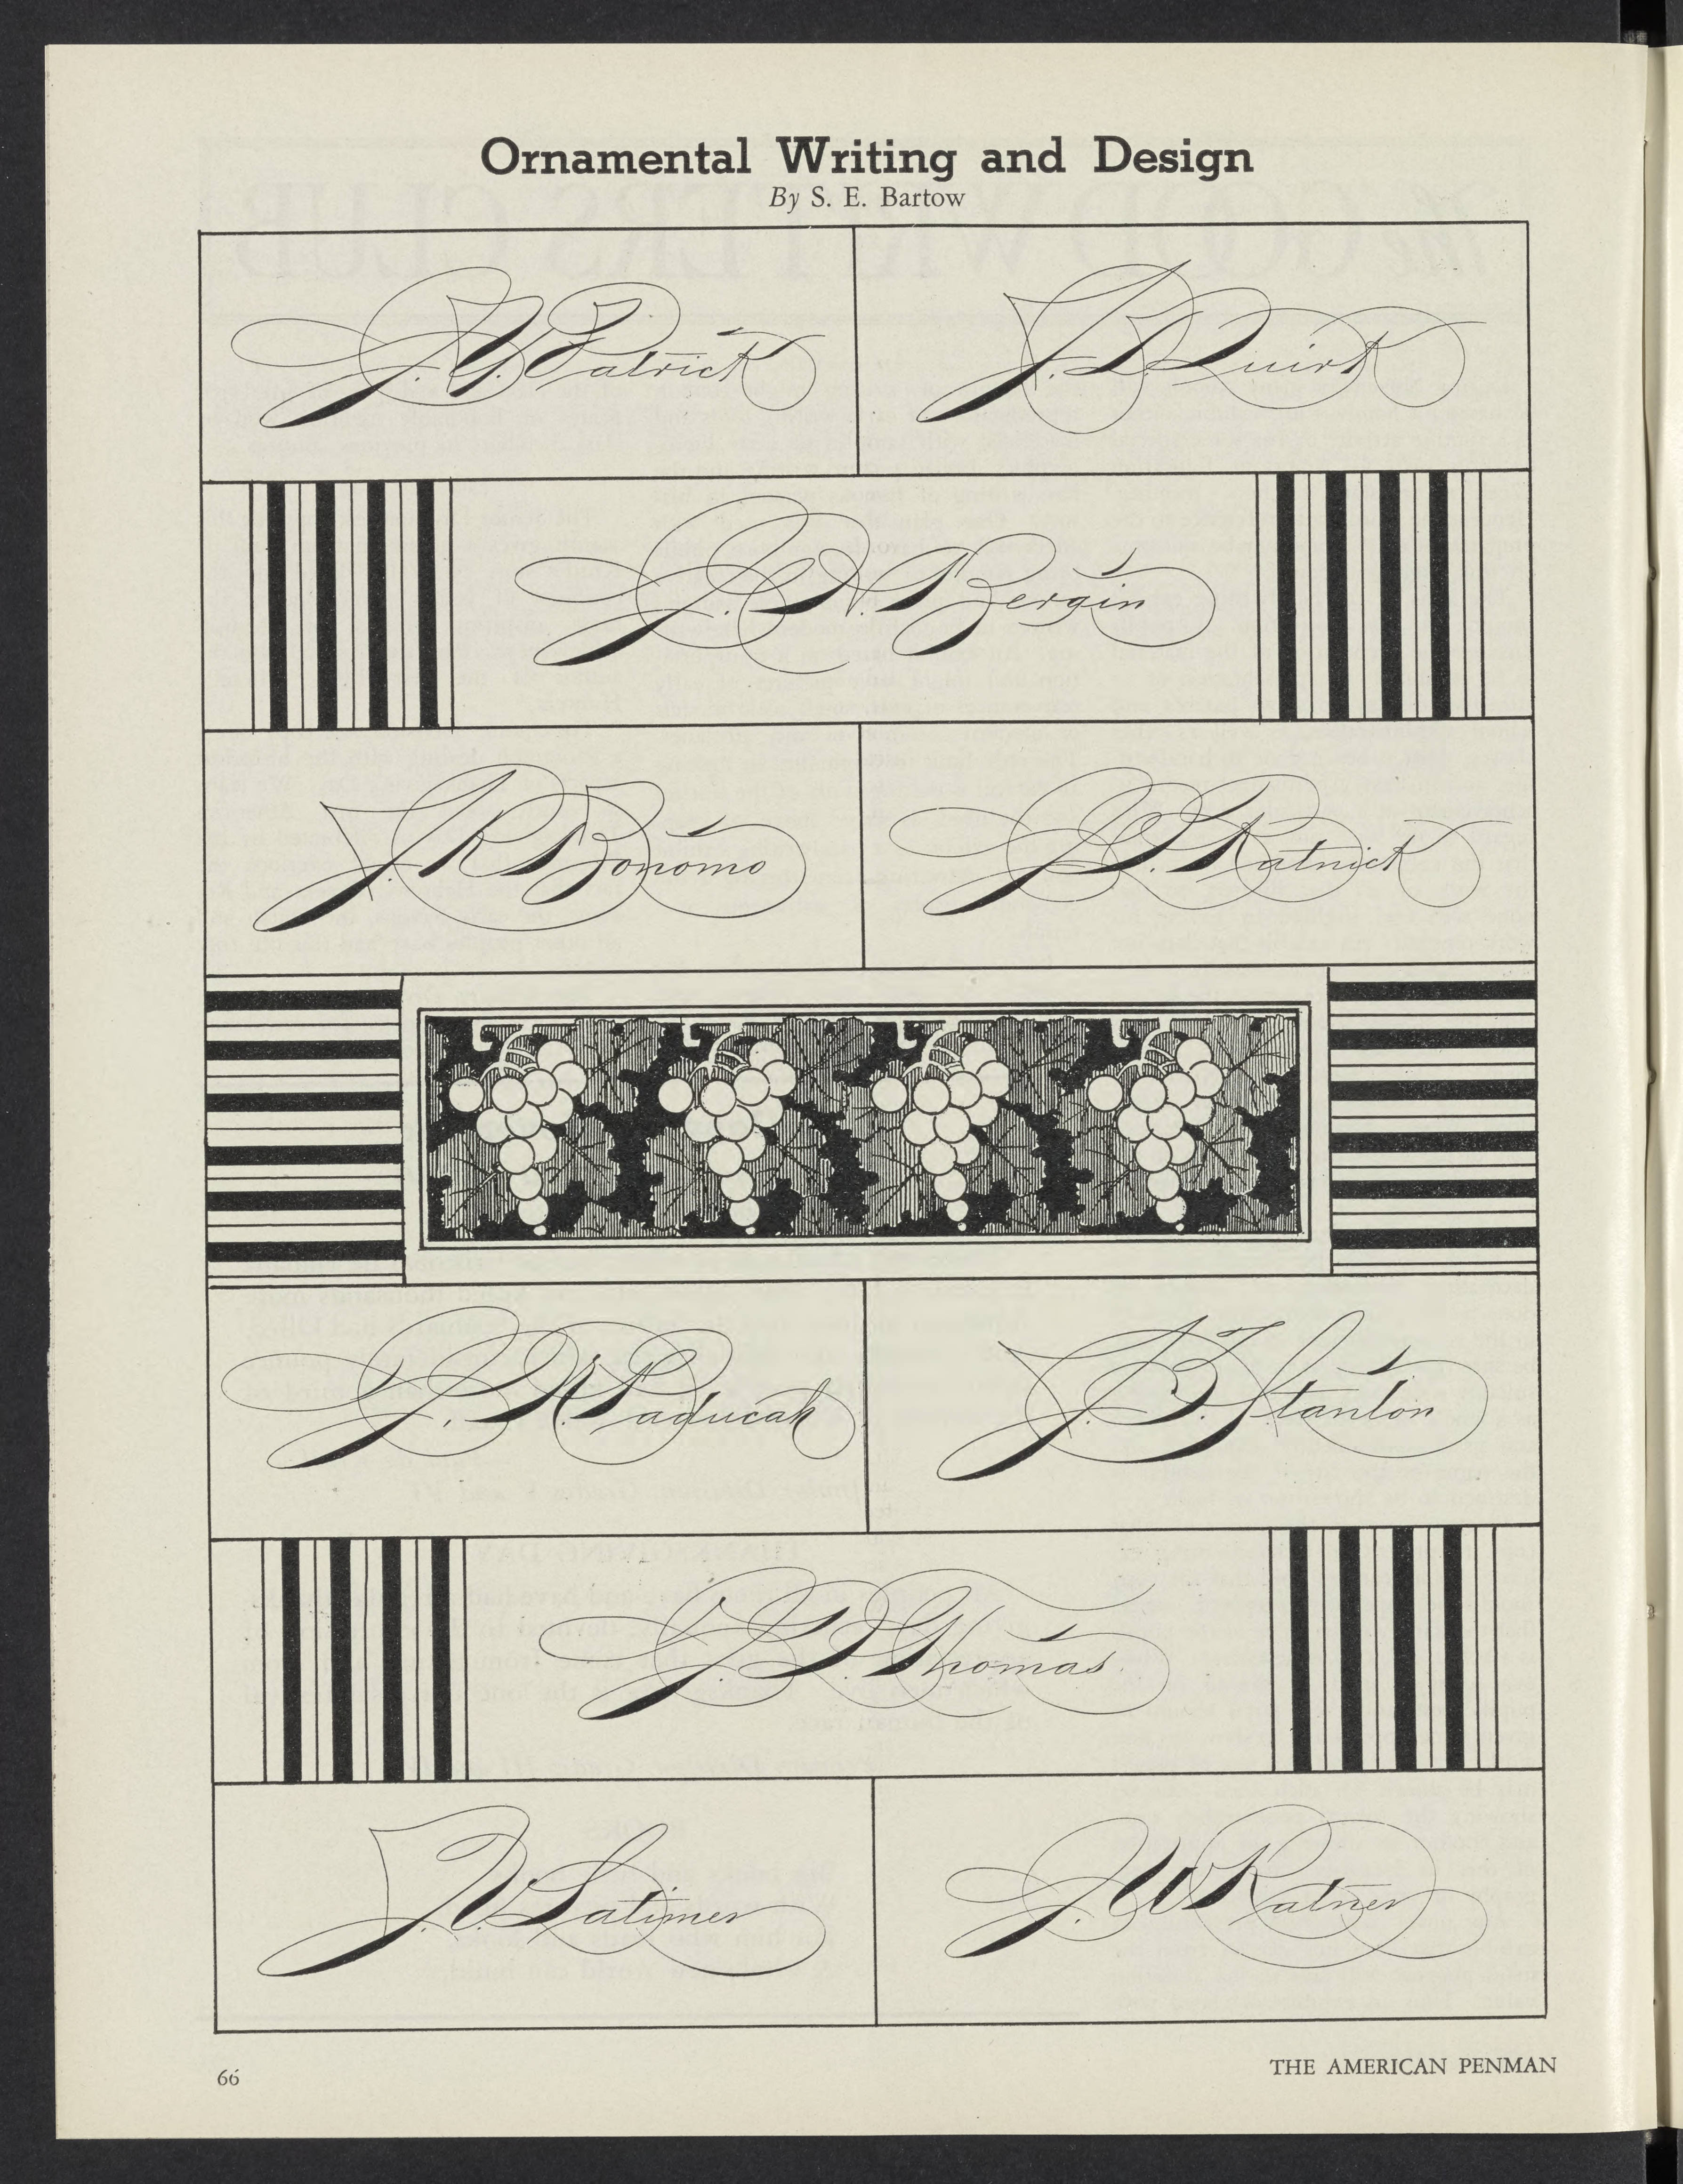 Ornamental Writing and Design
By S. E. Bartow
J. Y. Patrick
J. D. Quirk
J. N. Bergin
J. R. Bonomo
J. D. Ratnick
J. N. Paducah
J. B. Stanton
J. D. Thomas
J. V. Latimer
J. W. Ratner
66
THE AMERICAN PENMAN